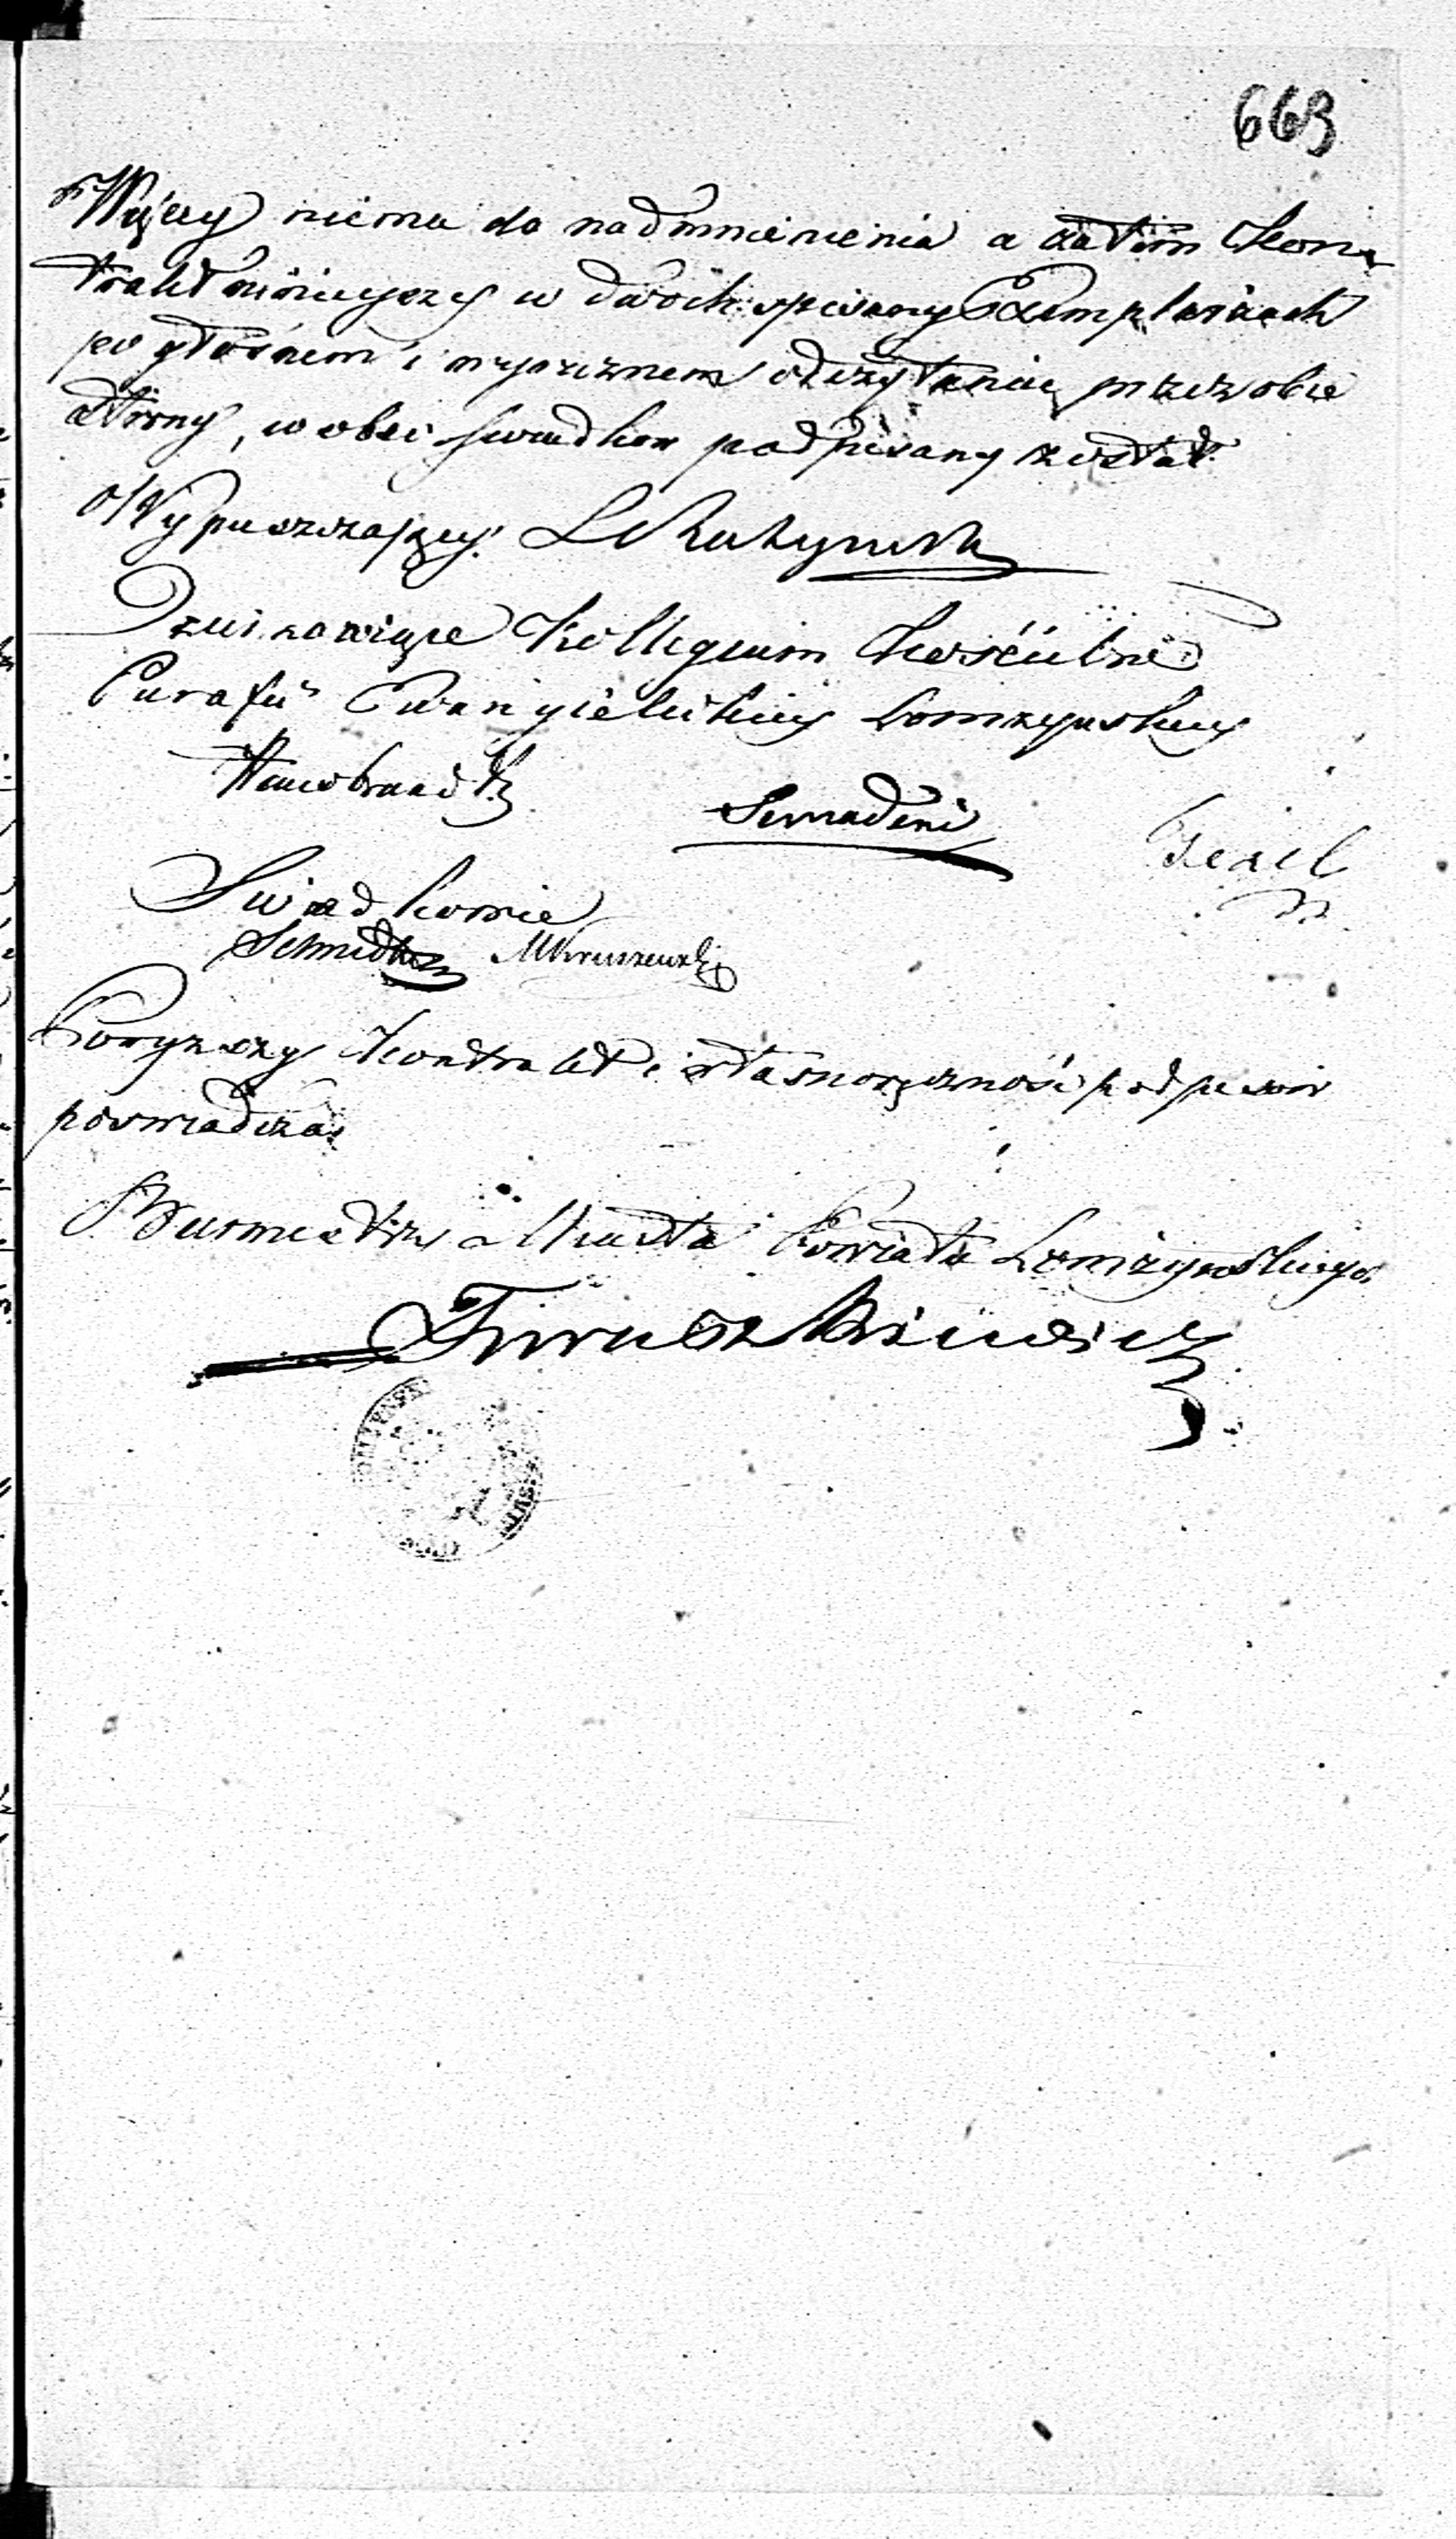 663
Więcy niema do nadmnienienia a zatem Kon
trakt ninieyszy w dwóch spisany Exemplarzach
po głośnem i wyraznem odczytaniu przez obie
strony, w obec swiadkow podpisany został
Wypuszczaiący.
Dzierzawiące Kollegium Kościelne
Parafii Ewangielickiey Łomzynskiey
Semadeni
Swiadkowie
Schmidt
Powyzszy Kontrakt i własnoręczność podpisów
poswiadcza
Burmistrz Miasta Powiatu Łomżynskiego